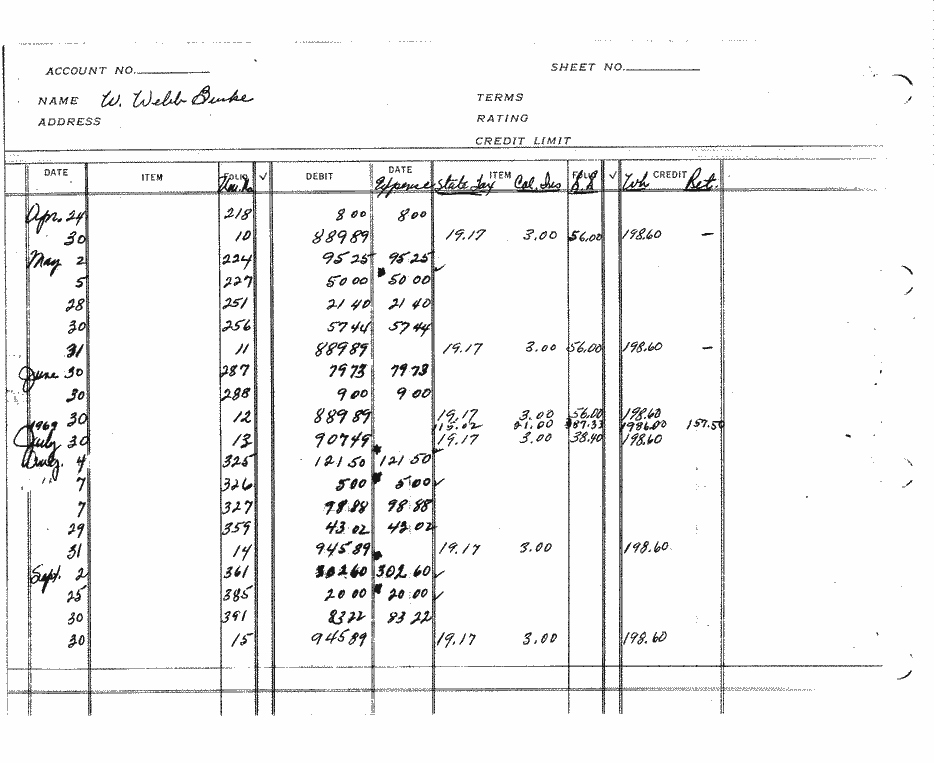 ACCOUNT NO. SHEET NO.
NAME W. Webb Burke TERMS
ADDRESS RATING
CREDIT LIMIT
DATE ITEM FOLIO ✓ DEBIT DATE ITEM FOLIO ✓ CREDIT
Expense State Tax Cal. Ins Wh Ret.
Apr. 24 218 8 00 8 00
30 10 889 89 19.17 3.00 56.00 198.60 —
May 2 224 95 25 95 25 ✓
5 227 50 00 50 00
28 251 21 40 21 40
30 256 57 44 57 44
31 11 889 89 19.17 3.00 56.00 198.60 —
June 30 287 79 73 79 73
30 288 9 00 9 00
30 12 889 89 19.17 3.00 56.00 198.60
1969 21.00 157.50
July 30 13 907 49 19.17 3.00 38.40 198.60
4 325 121 50 121 50
" 7 326 5 00 5 00 ✓
7 327 98 88 98 88
29 359 43 02 43 02
31 14 945 89 19.17 3.00 198.60
Sept. 2 361 302 60 302 60 ✓
25 385 20 00 20 00 ✓
30 391 83 22 83 22
30 15 945 89 19.17 3.00 198.60